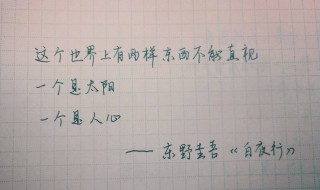 这个世界上有两样东西不能直视
一个是太阳
一个是人心
—— 东野圭吾《白夜行》